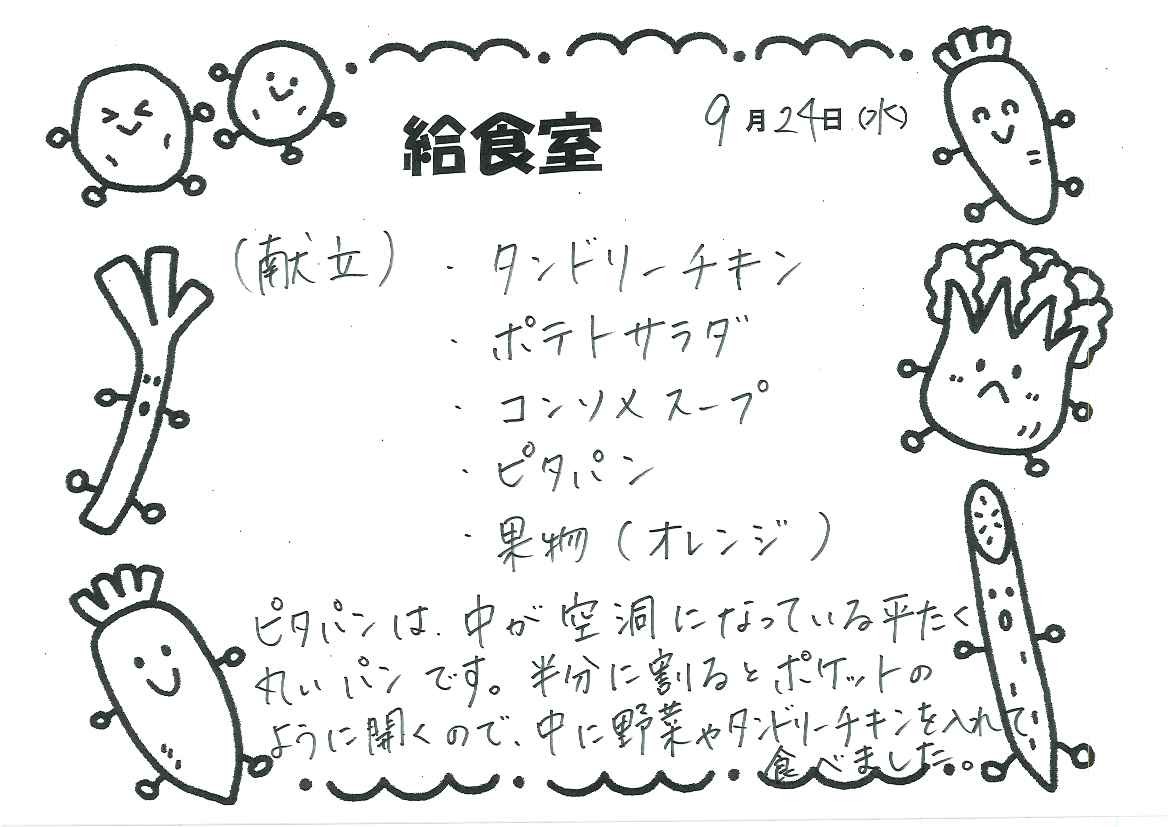 給食室
9月24日(水)
(献立)・タンドリーチキン
・ポテトサラダ
・コンソメスープ
・ピタパン
・果物(オレンジ)
ピタパンは、中が空洞になっている平たく
丸いパンです。半分に割るとポケットの
ように開くので、中に野菜やタンドリーチキンを入れて
食べました。